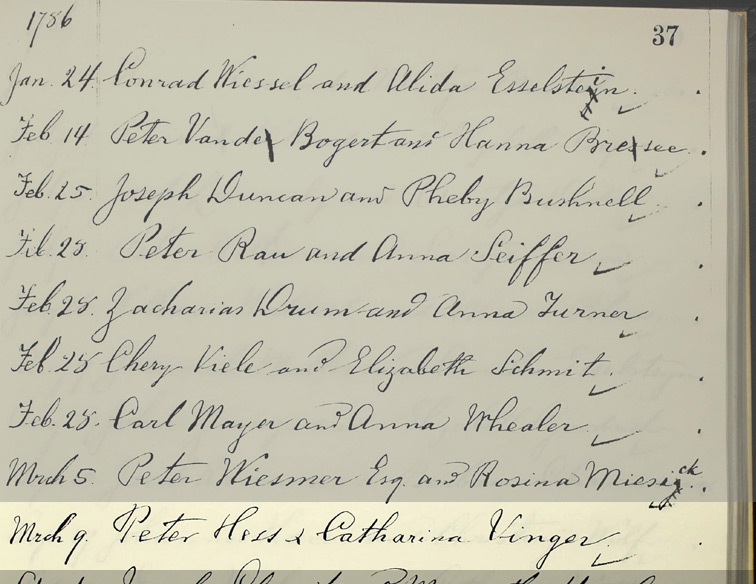 1786
37
Jan. 24. Conrad Wiessel and Alida Esselstein.
Feb 14 Peter Vander Bogert and Hanna Bressee.
Feb. 25. Joseph Duncan and Pheby Bushnell.
Feb. 28. Peter Rau and Anna Seiffer.
Feb. 28. Zacharias Drum and Anna Turner.
Feb. 28 Chery Viele and Elizabeth Schmit.
Feb. 28. Carl Mayer and Anna Whealer.
Mrch 5. Peter Wiesmer Esq. and Rosina Miesick.
Mrch 9. Peter Hess & Catharina Vinger.